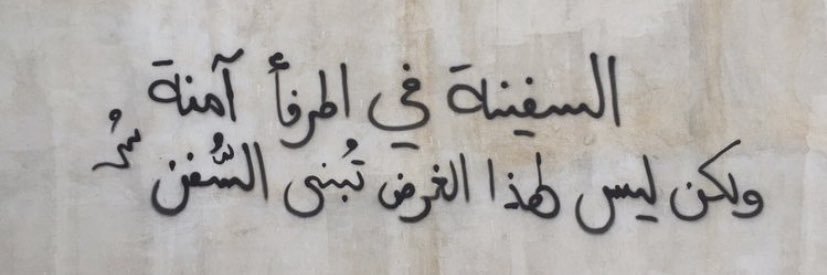 السفينة في المرفأ آمنة
ولكن ليس لهذا الغرض تُبنى السُّفن